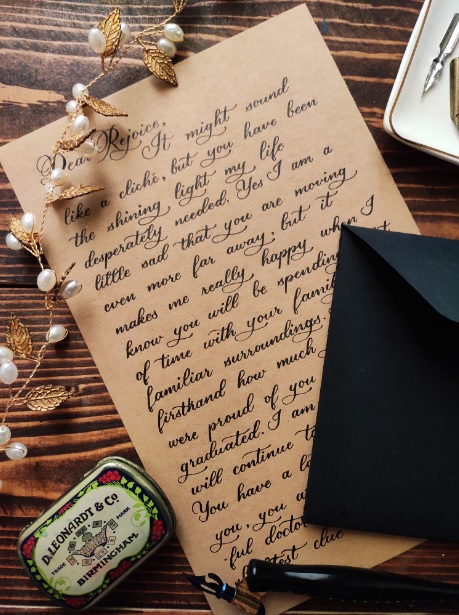 Dear Rejoice,
It might sound
like a cliché, but you have been
the shining light my life
desperately needed. Yes I am a
little sad that you are moving
even more far away; but it
makes me really happy when I
know you will be spending
of time with your famil
familiar surroundings.
firsthand how much
were proud of you
graduated. I am
will continue to
You have a lo
you, you a
ful docto
clue
D. LEONARDT & CO.
TRADE MARK
BIRMINGHAM